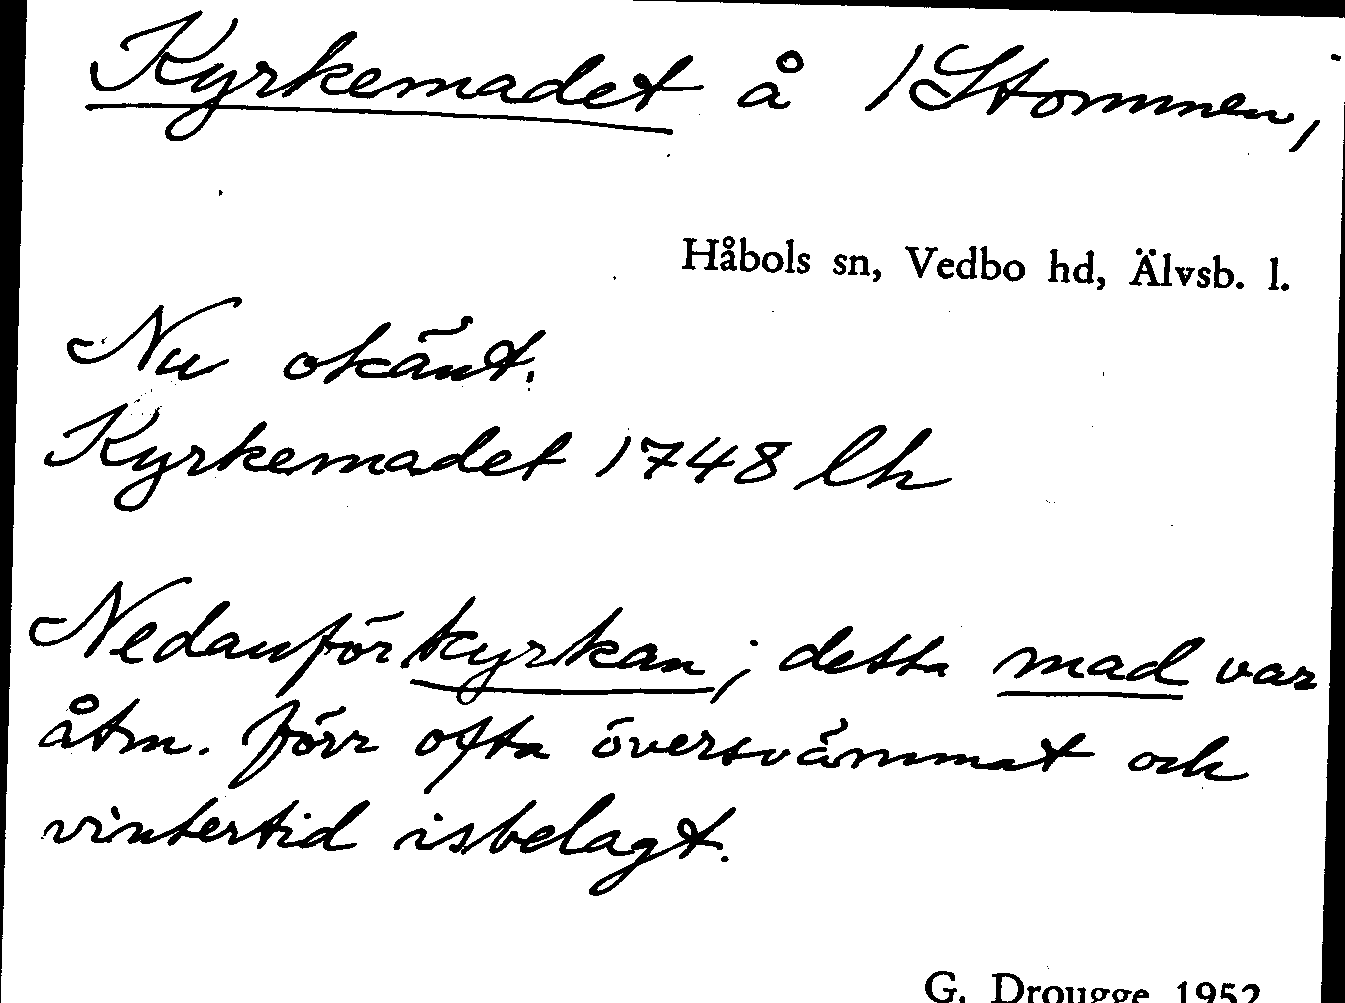 Kyrkemadet å 1 Stommen,
Håbols sn, Vedbo hd, Älvsb. l.
Nu okänt.
Kyrkemadet 1748 lh
Nedanför kyrkan; detta mad var
åtm. förr ofta översvämmat och
vintertid isbelagt.
G. Drougge 1952